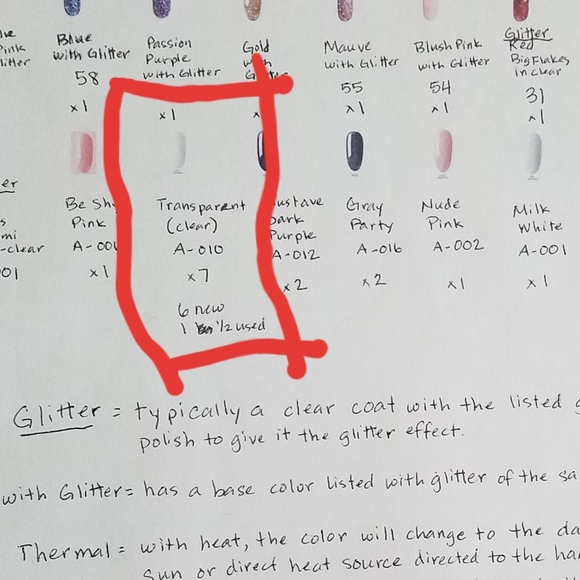 Blue
with Glitter
58
x1
Passion
Purple
with Glitter
x1
Gold
Mauve
with Glitter
55
x1
Blush Pink
with Glitter
54
x1
Glitter
Red
Big Flakes
in clear
31
x1
Pink
Be Shy
Pink
A-00
x1
Transparent
(clear)
A-010
x7
6 new
1 1/2 used
ustave
Dark
Purple
A-012
x2
Gray
Party
A-016
x2
Nude
Pink
A-002
x1
Milk
White
A-001
x1
-clear
01
Glitter = typically a clear coat with the listed
polish to give it the glitter effect.
with Glitter = has a base color listed with glitter of the sa
Thermal = with heat, the color will change to the da
sun or direct heat source directed to the ha